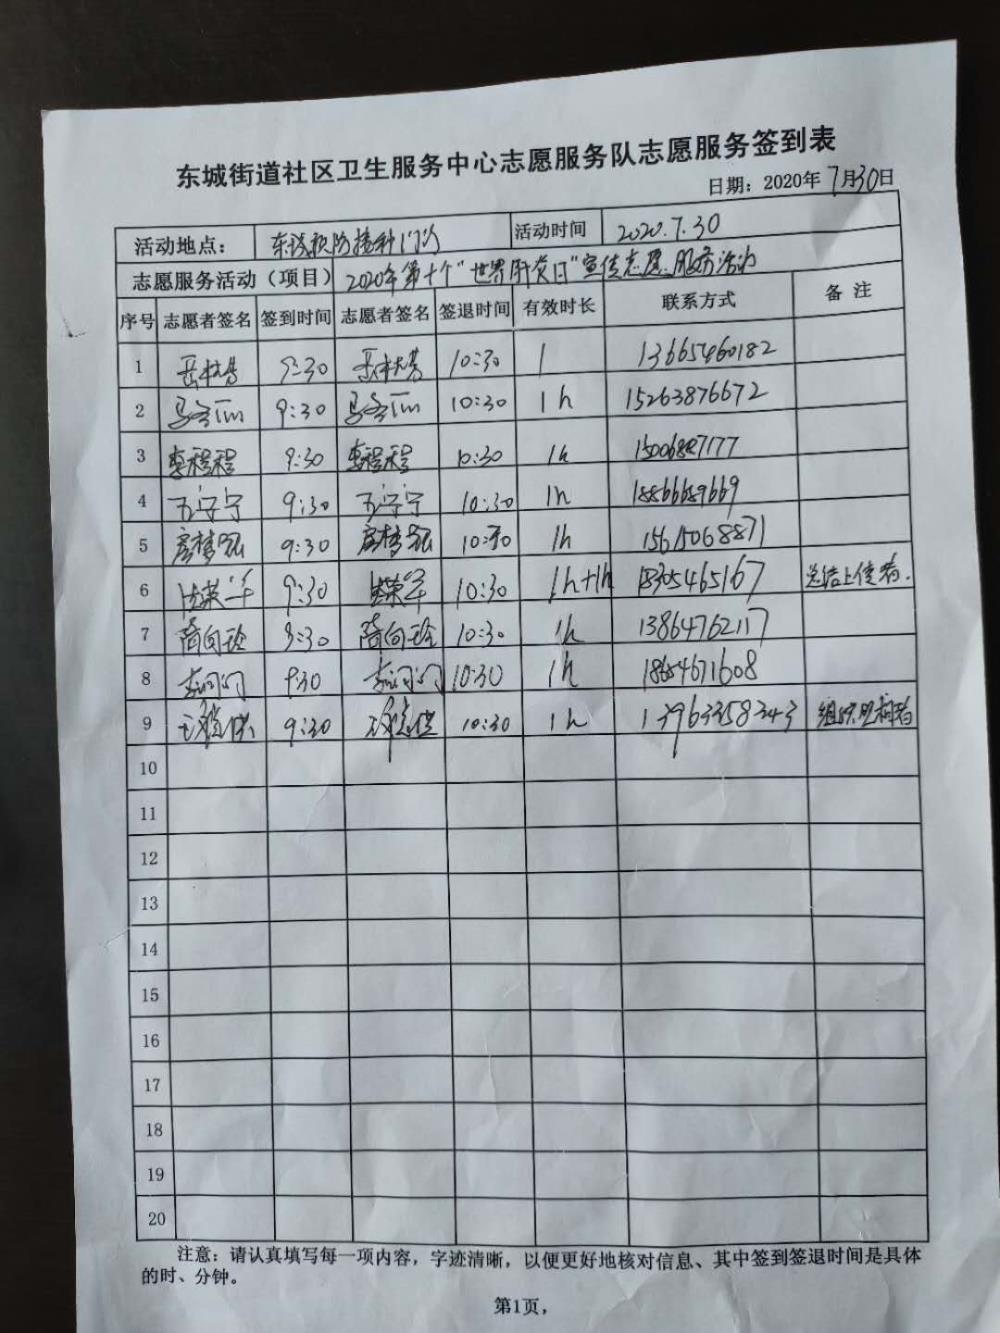 东城街道社区卫生服务中心志愿服务队志愿服务签到表
日期：2020年7月30日
活动地点： 东城预防接种门诊 活动时间 2020.7.30
志愿服务活动（项目） 2020年第十个“世界肝炎日”宣传志愿服务活动
序号 志愿者签名 签到时间 志愿者签名 签退时间 有效时长 联系方式 备 注
1 9:30 10:30 1 13665460182
2 9:30 10:30 1h 15263876672
3 李程程 9:30 李程程 10:30 1h
4 9:30 10:30 1h
5 9:30 10:30 1h 15615068871
6 9:30 10:30 1h+1h 18305465167 总结上传者.
7 隋向玲 9:30 隋向玲 10:30 1h 13864762117
8 9:30 10:30 1h 18654671608
9 9:30 10:30 1h 13963358243
10
11
12
13
14
15
16
17
18
19
20
注意：请认真填写每一项内容，字迹清晰，以便更好地核对信息、其中签到签退时间是具体
的时、分钟。
第1页,